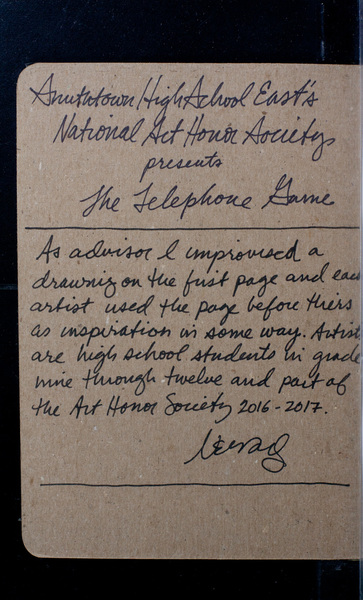 Smithtown High School East's
National Art Honor Society
presents
The Telephone Game
As advisor I improvised a
drawing on the first page and eac
artist used the page before theirs
as inspiration in some way. Artist
are high school students in grade
nine through twelve and part of
the Art Honor Society 2016-2017.